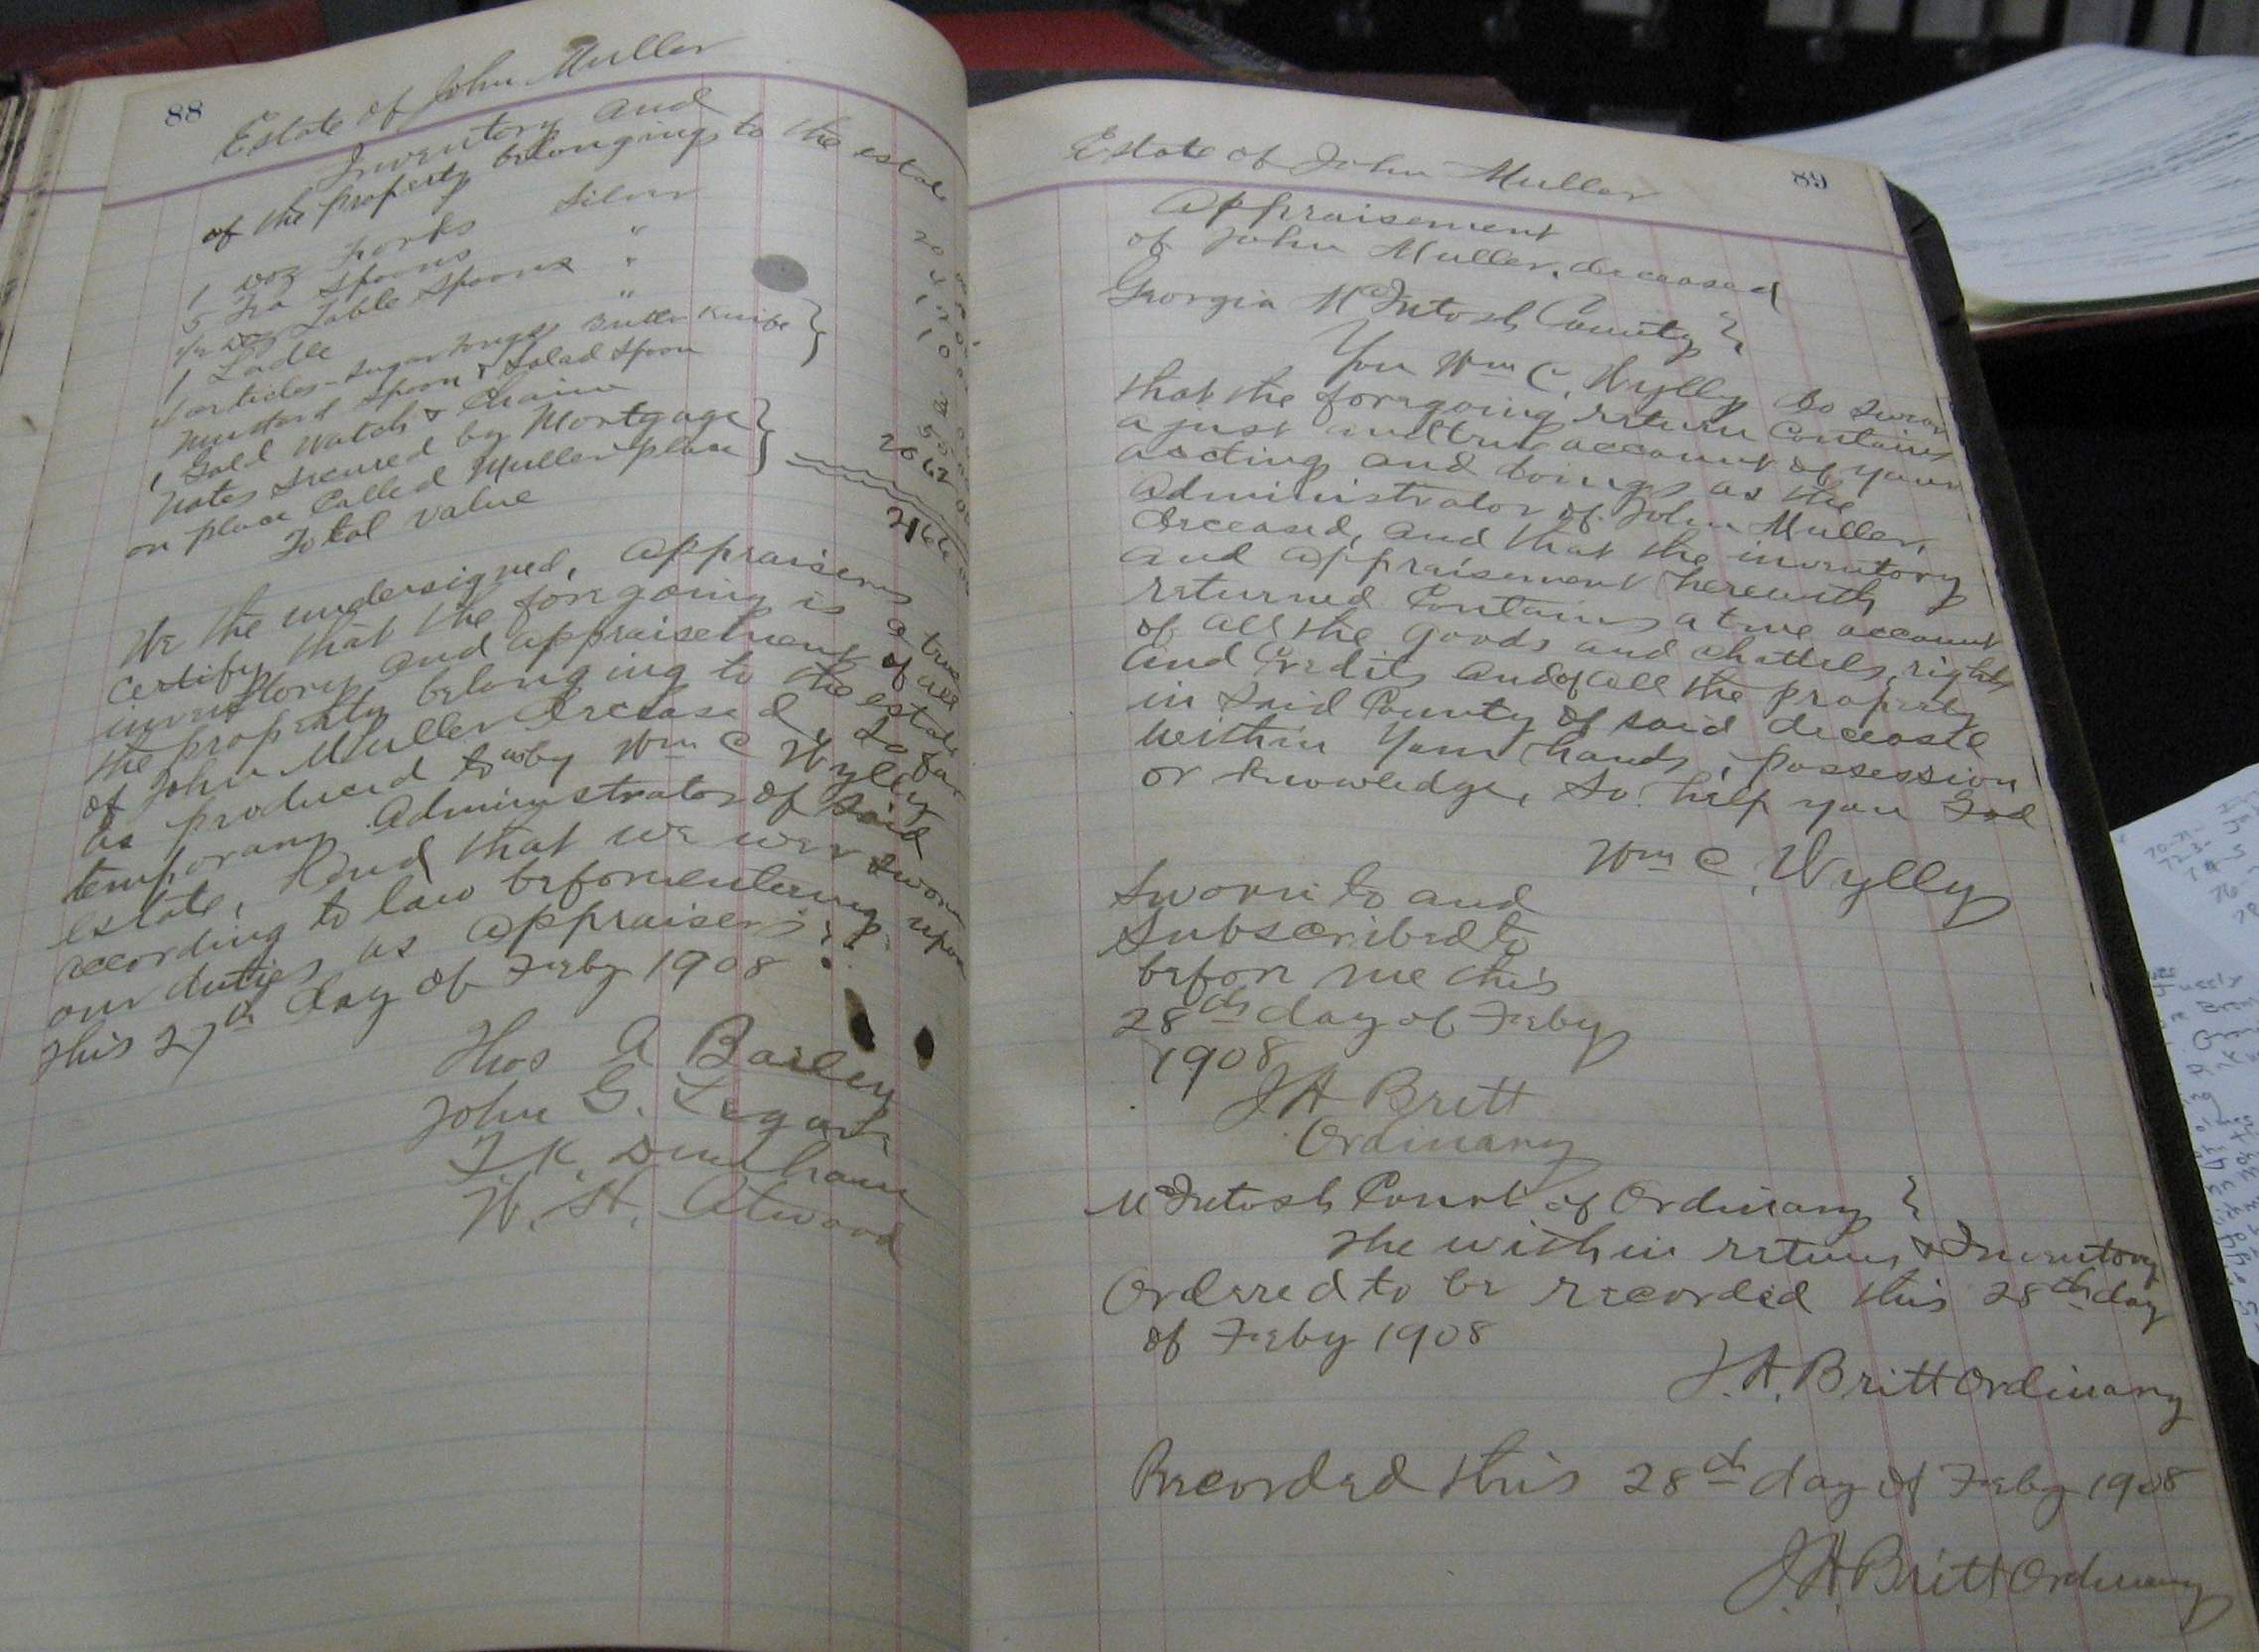 88
Estate of John Muller
Inventory and
of the property belonging to the estate
1 doz Forks Silver
5 Tea Spoons "
1/2 doz Table Spoons "
1 Ladle "
4 articles - Sugar Tongs Butter Knife
Mustard Spoon & Salad Spoon
1 Gold Watch & Chain
Notes secured by Mortgage
on place Called Muller place 2062
Total value
We the undersigned, appraisers
certify that the foregoing is a true
inventory and appraisement of all
the property belonging to the estate
of John Muller Deceased, so far
as produced to us by Wm C Wylly
temporary Administrator of said
estate, And that we were sworn
according to law before entering upon
our duties as appraisers
This 27th day of Feby 1908
Thos A Bailey
John G. Legare
T K. Dunham
W. H. Atwood
Estate of John Muller 89
Appraisement
of John Muller, deceased
Georgia McIntosh County
You Wm C. Wylly do swear
that the foregoing return Contains
a just and true account of your
acting and doings as the
Administrator of John Muller,
deceased, and that the inventory
and appraisement herewith
returned Contains a true account
of all the goods and chattels, rights
and Credits and of all the property
in said County of said deceased
within your hands, possession
or knowledge, So help you God
Wm C. Wylly
Sworn to and
Subscribed to
before me this
28th day of Feby
1908
J A Britt
Ordinary
McIntosh Court of Ordinary
The within return & Inventory
Ordered to be recorded this 28th day
of Feby 1908
J. A. Britt Ordinary
Recorded this 28th day of Feby 1908
J. A. Britt Ordinary